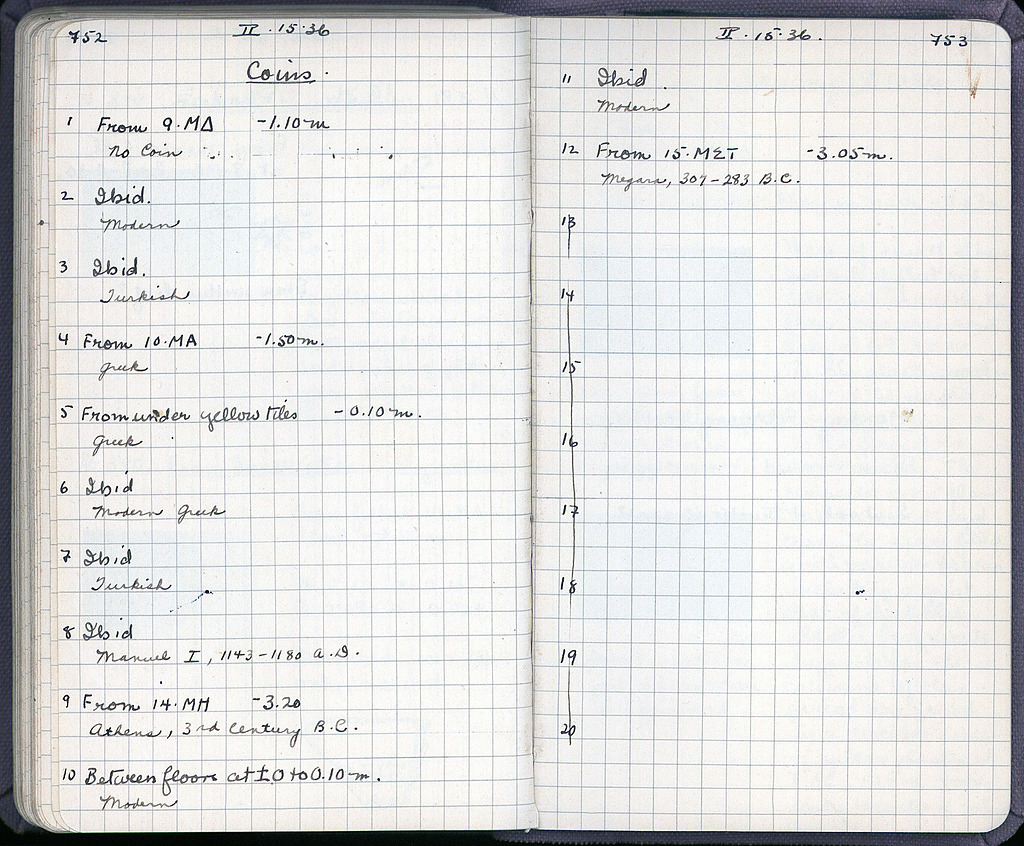 752
II . 15 - 36
Coins.
1 From 9·ΜΔ -1.10 m
No Coin
2 Ibid.
Modern
3 Ibid.
Turkish
4 From 10·ΜΑ -1.50 m.
Greek
5 From under yellow tiles -0.10 m.
Greek
6 Ibid
Modern Greek
7 Ibid
Turkish
8 Ibid
Manuel I, 1143-1180 A.D.
9 From 14·ΜΗ -3.20
Athens, 3rd century B.C.
10 Between floors at ±0 to 0.10 m.
Modern
II · 15 · 36.
753
11 Ibid.
Modern
12 From 15·ΜΣΤ -3.05 m.
Megara, 307-283 B.C.
13
14
15
16
17
18
19
20